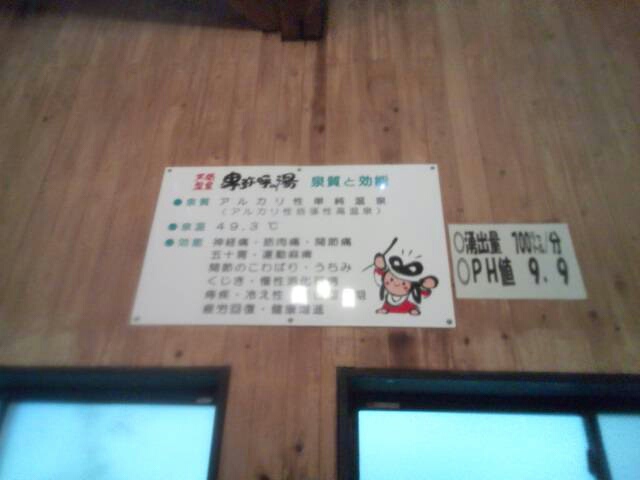 天然温泉 卑弥呼の湯 泉質と効能
●泉質 アルカリ性単純温泉
(アルカリ性低張性高温泉)
●泉温 49.3℃
●効能 神経痛・筋肉痛・関節痛
五十肩・運動麻痺
関節のこわばり・うちみ
くじき・慢性消化器
痔疾・冷え性
疲労回復・健康増進
○湧出量 700㍑/分
○PH値 9.9